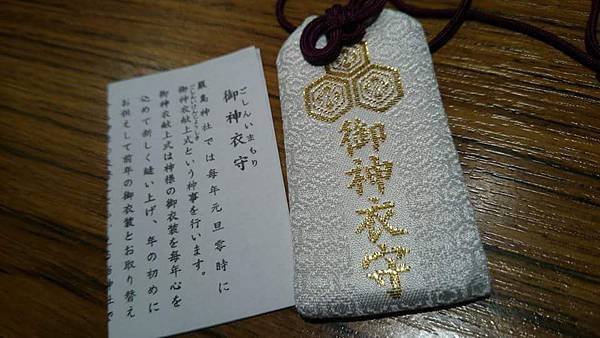 ごしんいまもり
御神衣守
厳島神社では毎年元旦零時に
ごしんいけんじょうしき
御神衣献上式という神事を行います。
御神衣献上式は神様の御衣装を毎年心を
込めて新しく縫い上げ、年の初めに
お供えして前年の御衣装とお取り替え
御神衣守